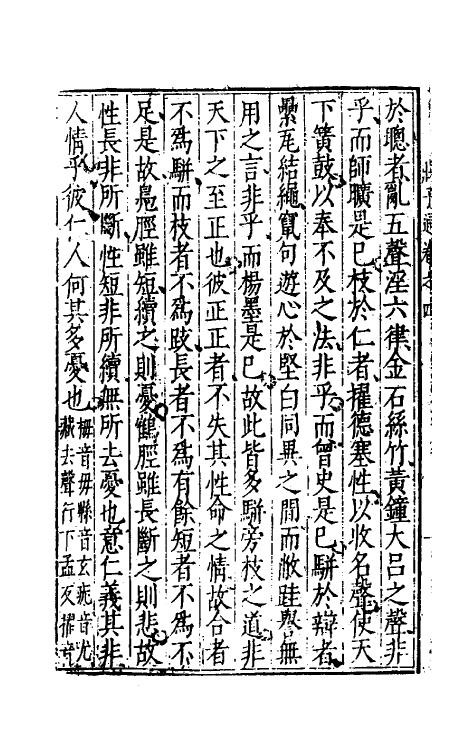 於聰者亂五聲淫六律金石絲竹黃鐘大呂之聲非
乎而師曠是已枝於仁者擢德塞性以收名聲使天
下簧鼓以奉不及之法非乎而曾史是已駢於辯者
纍瓦結繩竄句遊心於堅白同異之間而敝跬譽無
用之言非乎而楊墨是已故此皆多駢旁枝之道非
天下之至正也彼正正者不失其性命之情故合者
不爲駢而枝者不爲跂長者不爲有餘短者不爲不
足是故鳧脛雖短續之則憂鶴脛雖長斷之則悲故
性長非所斷性短非所續無所去憂也意仁義其非
人情乎彼仁人何其多憂也
拇音毋縣音玄疣音尤
藏去聲行下孟反擢音